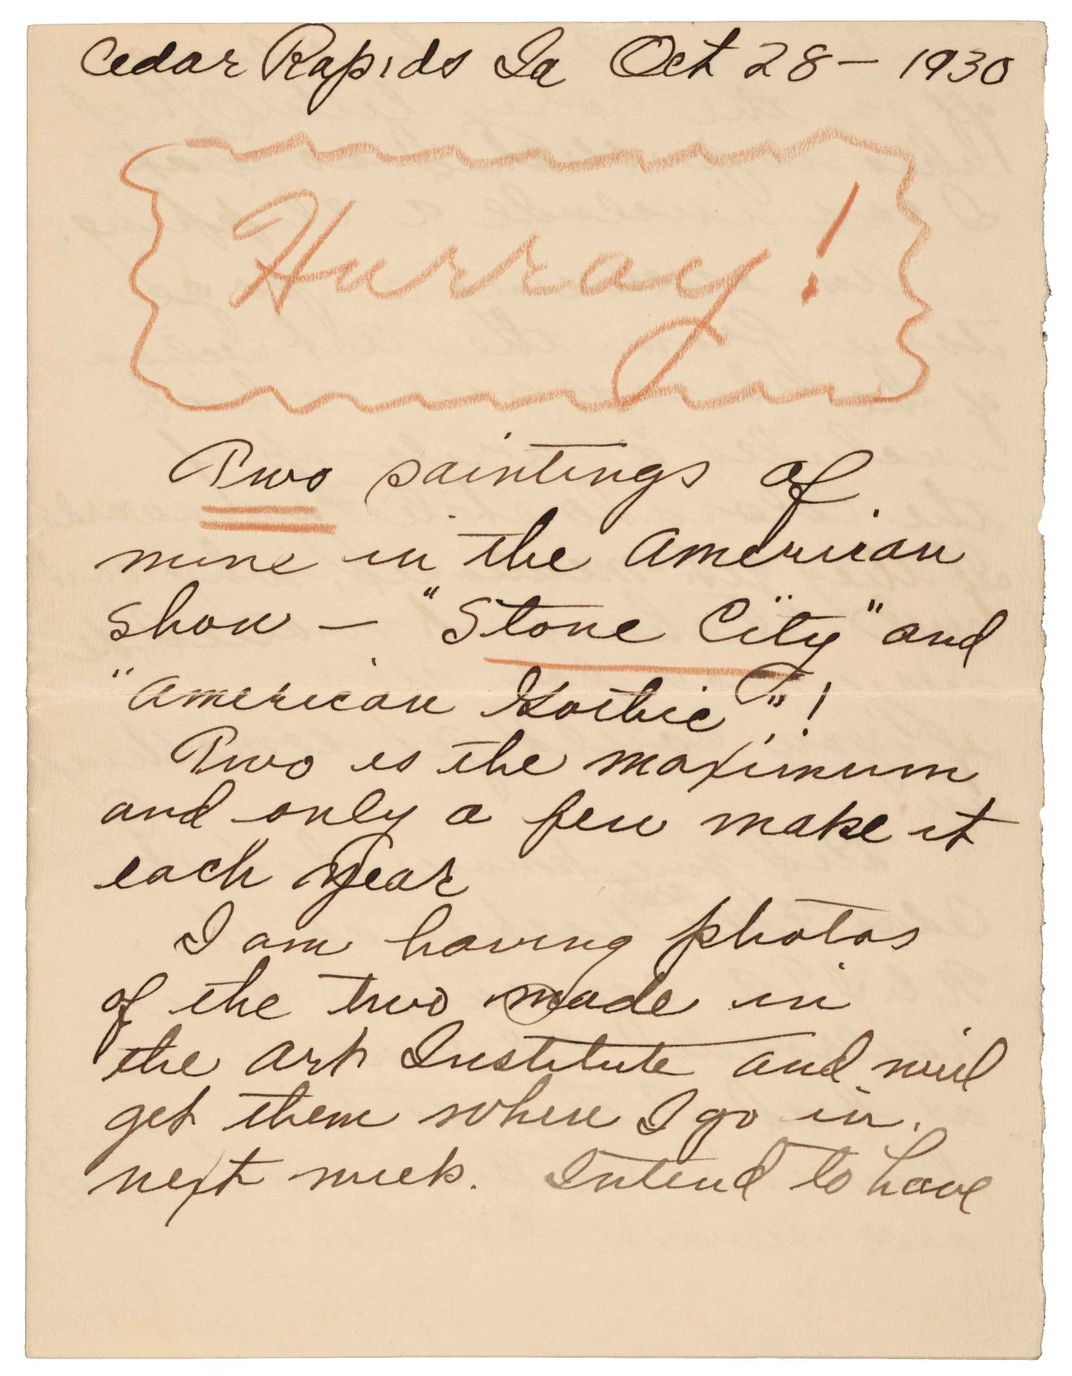 Cedar Rapids Ia Oct 28 – 1930
Hurray!
Two paintings of
mine in the American
show – "Stone City" and
"American Gothic"!
Two is the maximum
and only a few make it
each year
I am having photos
of the two made in
the Art Institute and will
get them when I go in
next week. Intend to have